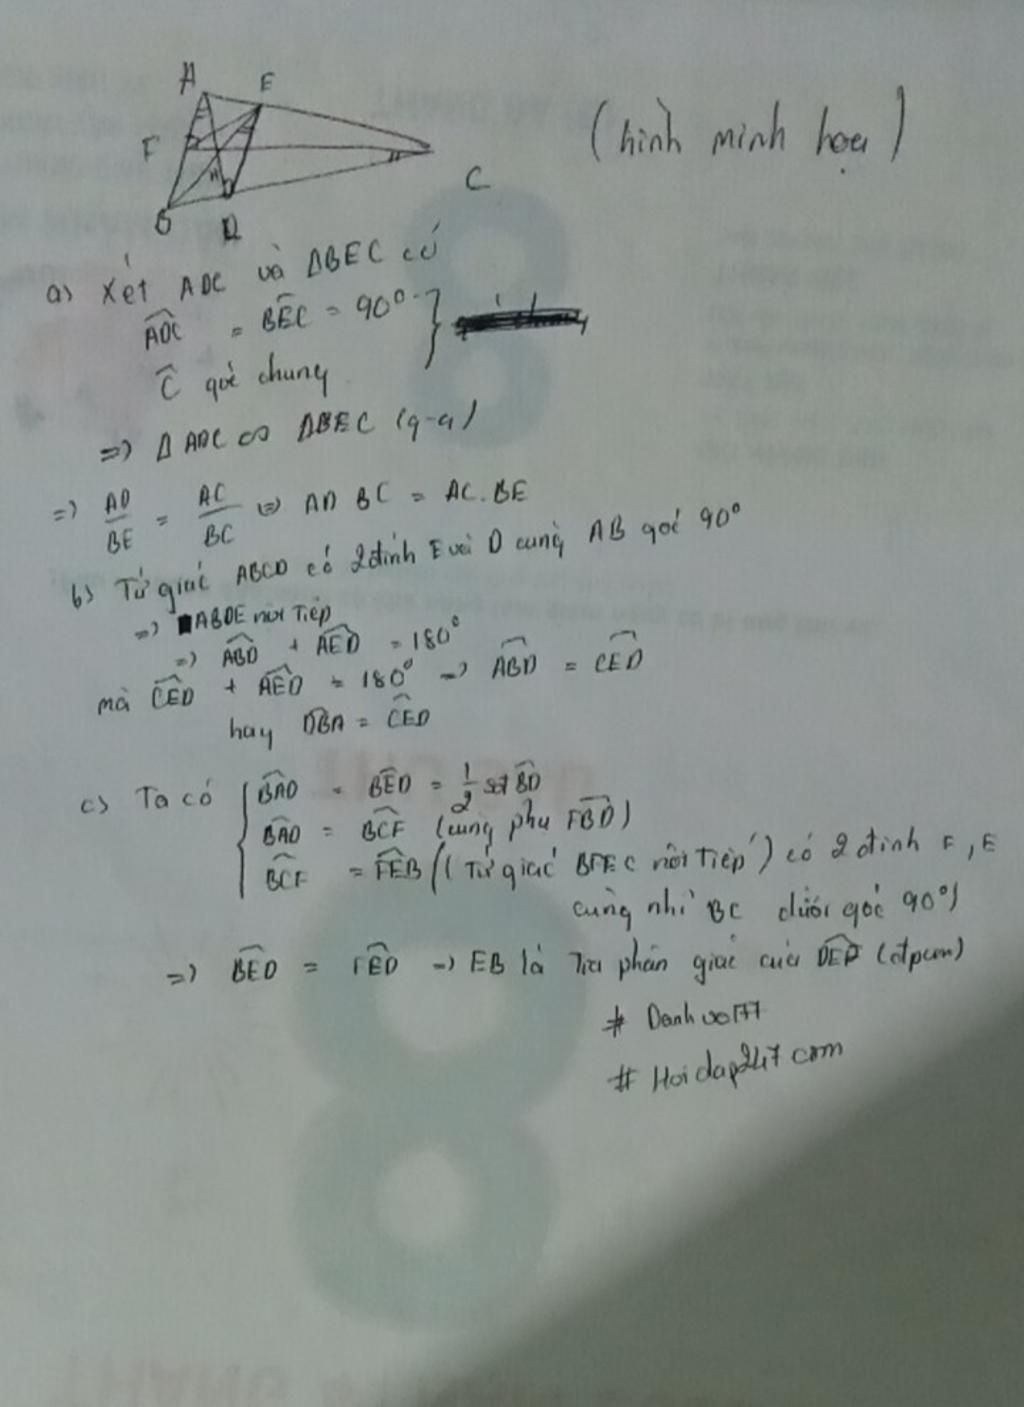 A E
F
H
B D
C
(hình minh họa)
a) Xét ADC và ΔBEC có
ADC = BEC = 90°
C góc chung
=> Δ ADC ∽ ΔBEC (g-g)
=> AD/BE = AC/BC => AD BC = AC.BE
b) Tứ giác ABCD có 2 đỉnh E với D cùng AB góc 90°
=> ABDE nội tiếp
=> ABD + AED = 180°
mà CED + AED = 180° => ABD = CED
hay DBA = CED
c) Ta có BAD = BED = 1/2 sđ BD
BAD = BCF (cùng phụ FBD)
BCF = FEB ((Tứ giác BFEC nội tiếp) có 2 đỉnh F, E
cùng nhì BC dưới góc 90°)
=> BED = FED => EB là Tia phân giác của DEF (đpcm)
# Danhvo177
# Hoidap247 com